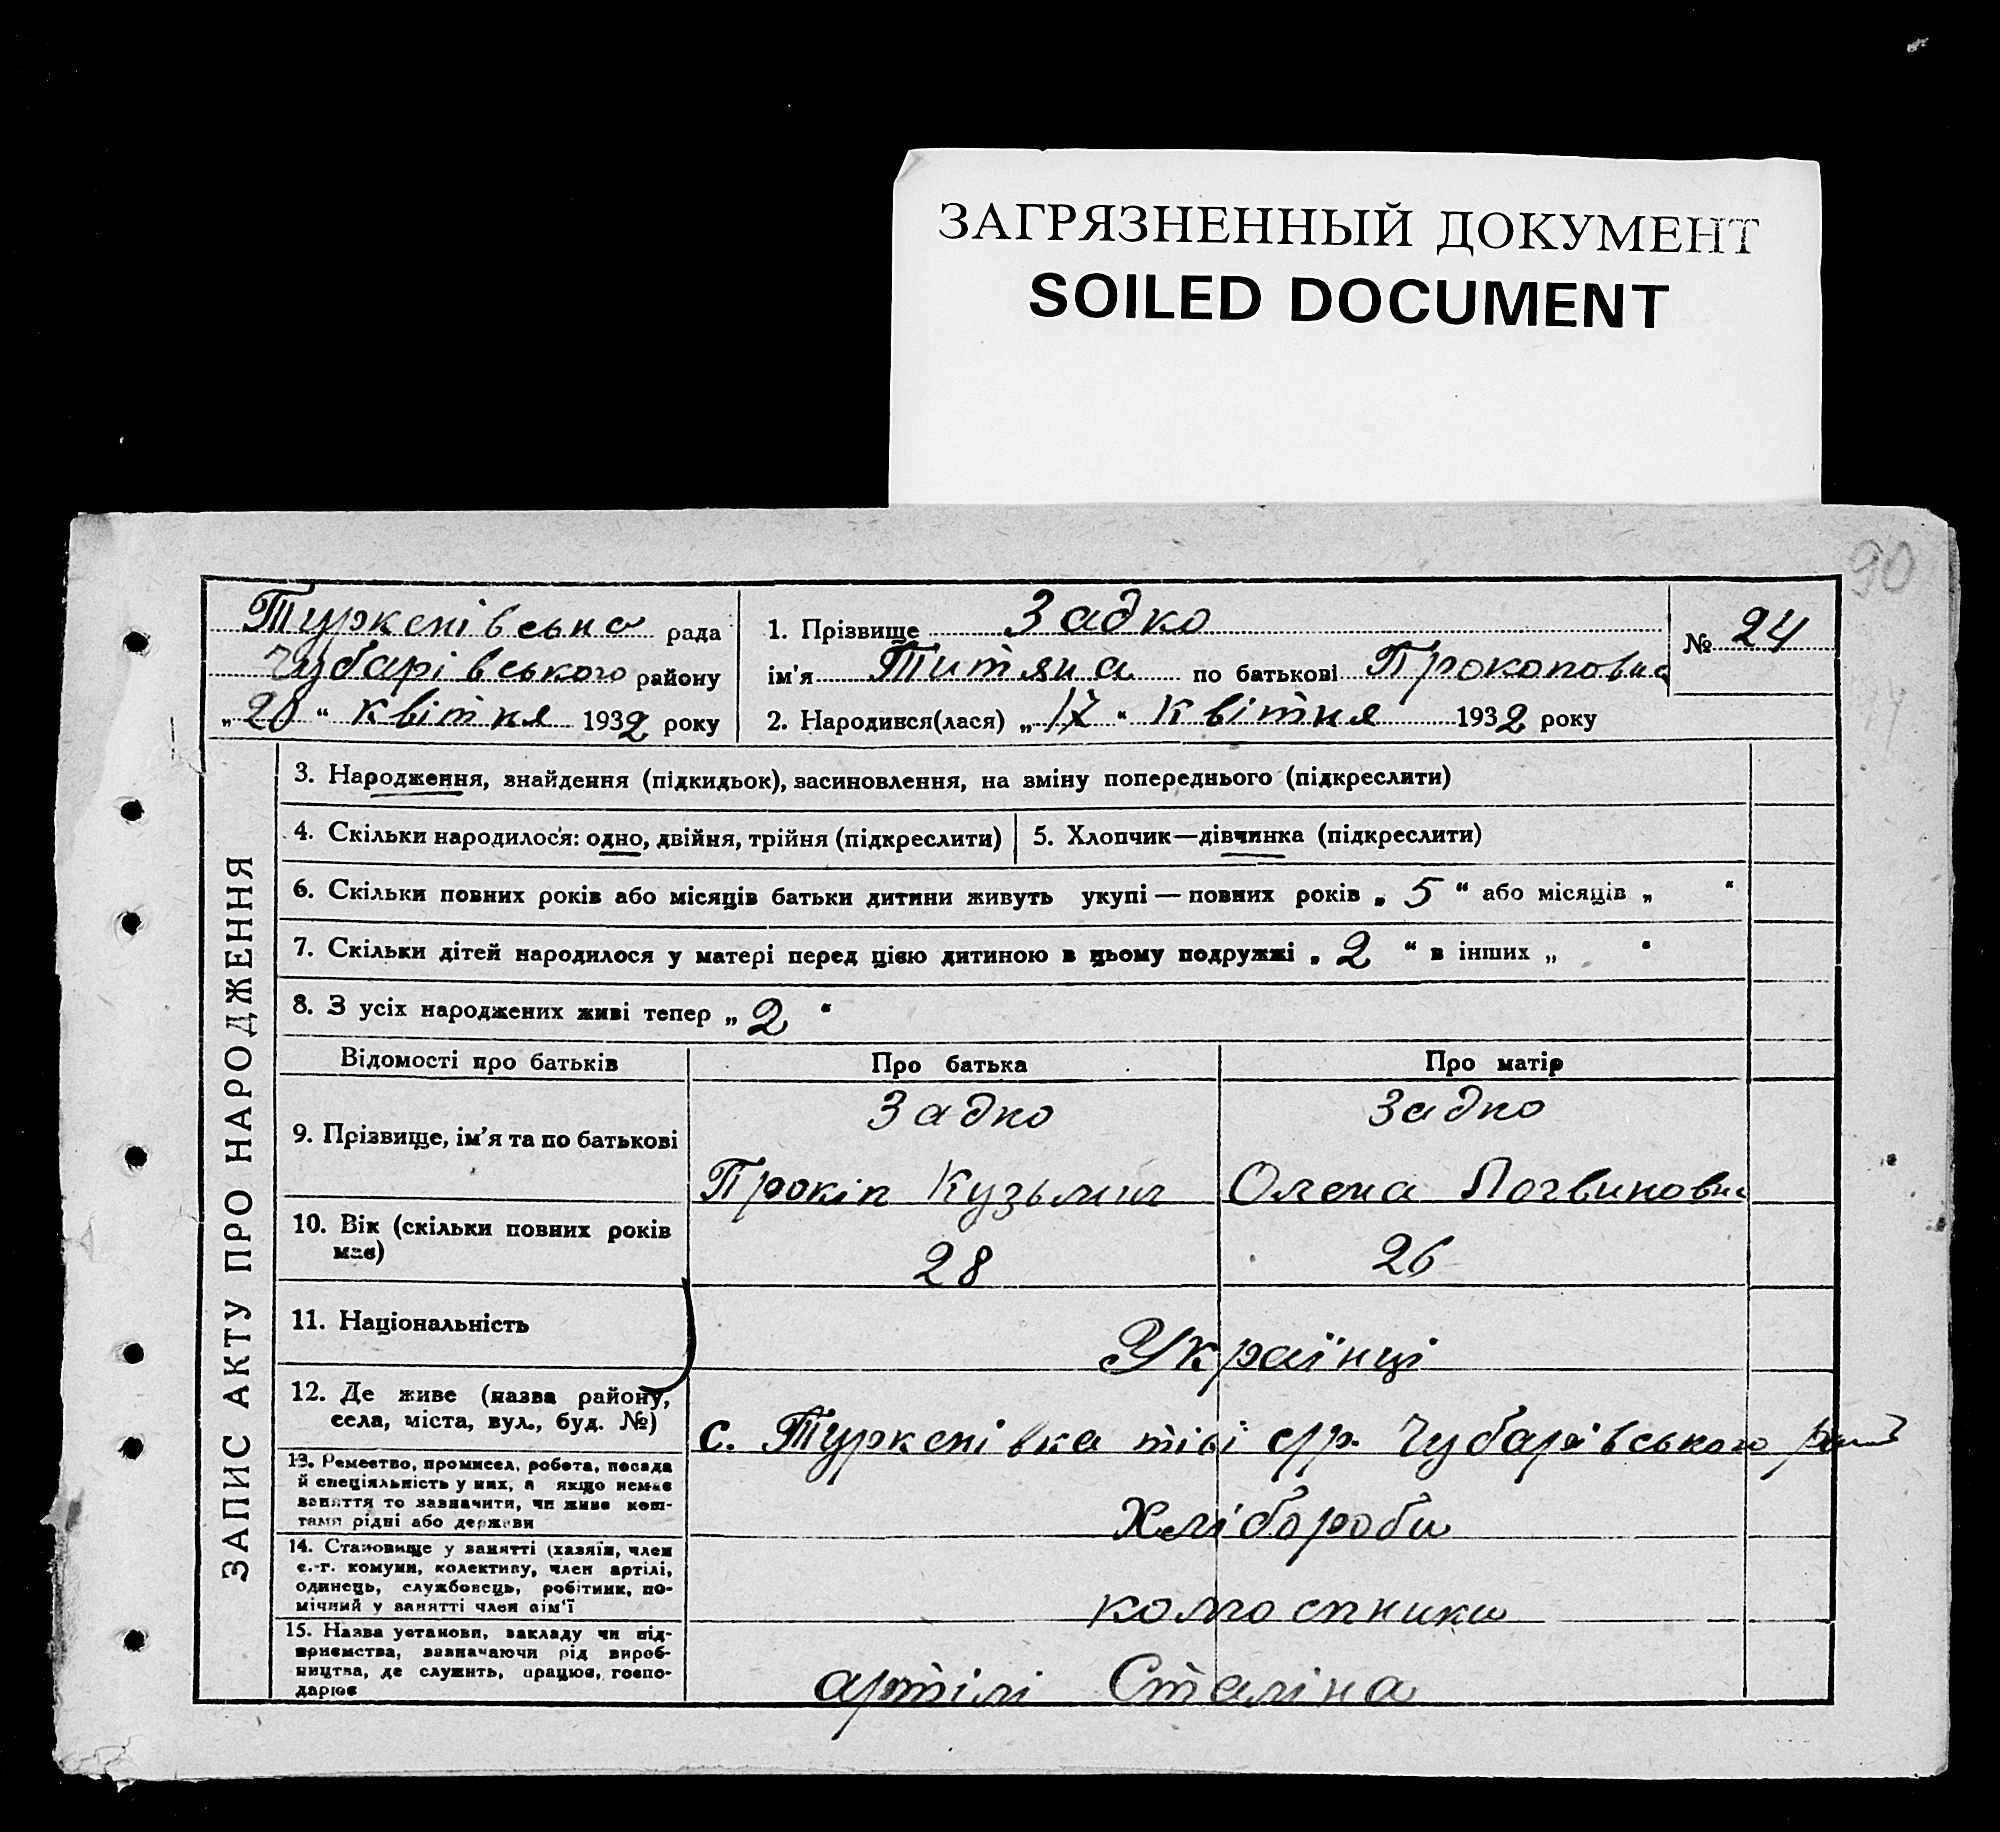 ЗАГРЯЗНЕННЫЙ ДОКУМЕНТ
SOILED DOCUMENT
90
Туркенівська рада
Чубарівського району
„20“ квітня 1932 року
1. Прізвище Задко
ім'я Титяна по батькові Прокоповна
№ 24
2. Народився(лася) „17“ квітня 1932 року
ЗАПИС АКТУ ПРО НАРОДЖЕННЯ
3. Народження, знайдення (підкидьок), засиновлення, на зміну попереднього (підкреслити)
4. Скільки народилося: одно, двійня, трійня (підкреслити)
5. Хлопчик—дівчинка (підкреслити)
6. Скільки повних років або місяців батьки дитини живуть укупі — повних років „5“ або місяців „ “
7. Скільки дітей народилося у матері перед цією дитиною в цьому подружжі „2“ в інших „ “
8. З усіх народжених живі тепер „2“
Відомості про батьків Про батька Про матір
9. Прізвище, ім'я та по батькові
Задко
Прокіп Кузьмич
Задко
Олена Логвиновна
10. Вік (скільки повних років
має)
28 26
11. Національність
Українці
12. Де живе (назва району,
села, міста, вул., буд. №)
с. Туркенівка тієі с/р. Чубарівського рай
13. Ремество, промисел, робота, посада
й спеціяльність у них, а якщо немає
заняття то зазначити, чи живе кош-
тами рідні або держави
Хлібороби
14. Становище у занятті (хазяїн, член
с.-г. комуни, колективу, член артілі,
одинець, службовець, робітник, по-
мічний у занятті член сім'ї
колгоспники
15. Назва установи, закладу чи під-
приємства, зазначаючи рід вироб-
ництва, де служить, працює, госпо-
дарює
артілі Сталіна